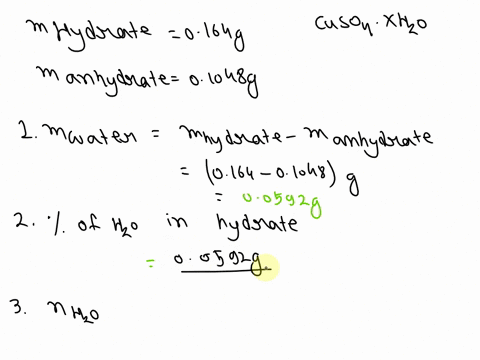 m Hydrate = 0.164g CuSO4 . XH2O
m anhydrate = 0.1048g
1. m water = m hydrate - m anhydrate
= (0.164 - 0.1048) g
= 0.0592g
2. % of H2O in hydrate
= 0.0592g
3. n H2O